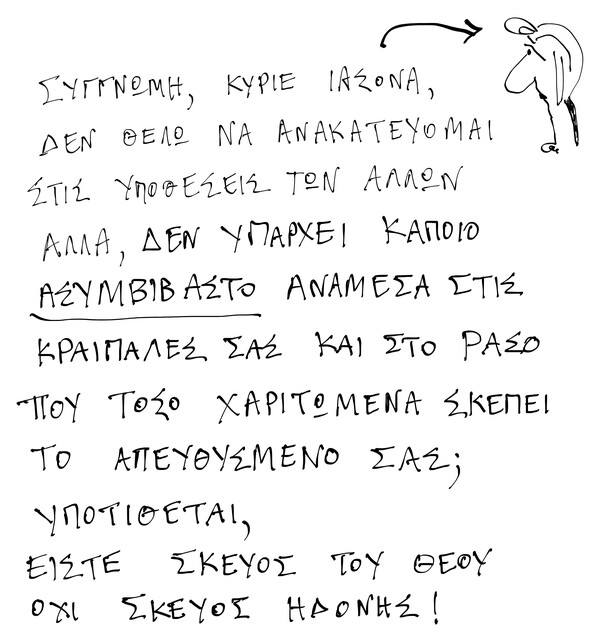 ΣΥΓΓΝΩΜΗ, ΚΥΡΙΕ ΙΑΣΟΝΑ,
ΔΕΝ ΘΕΛΩ ΝΑ ΑΝΑΚΑΤΕΥΟΜΑΙ
ΣΤΙΣ ΥΠΟΘΕΣΕΙΣ ΤΩΝ ΑΛΛΩΝ
ΑΛΛΑ, ΔΕΝ ΥΠΑΡΧΕΙ ΚΑΠΟΙΟ
ΑΣΥΜΒΙΒΑΣΤΟ ΑΝΑΜΕΣΑ ΣΤΙΣ
ΚΡΑΙΠΑΛΕΣ ΣΑΣ ΚΑΙ ΣΤΟ ΡΑΣΟ
ΠΟΥ ΤΟΣΟ ΧΑΡΙΤΩΜΕΝΑ ΣΚΕΠΕΙ
ΤΟ ΑΠΕΥΘΥΣΜΕΝΟ ΣΑΣ;
ΥΠΟΤΙΘΕΤΑΙ,
ΕΙΣΤΕ ΣΚΕΥΟΣ ΤΟΥ ΘΕΟΥ
ΟΧΙ ΣΚΕΥΟΣ ΗΔΟΝΗΣ!